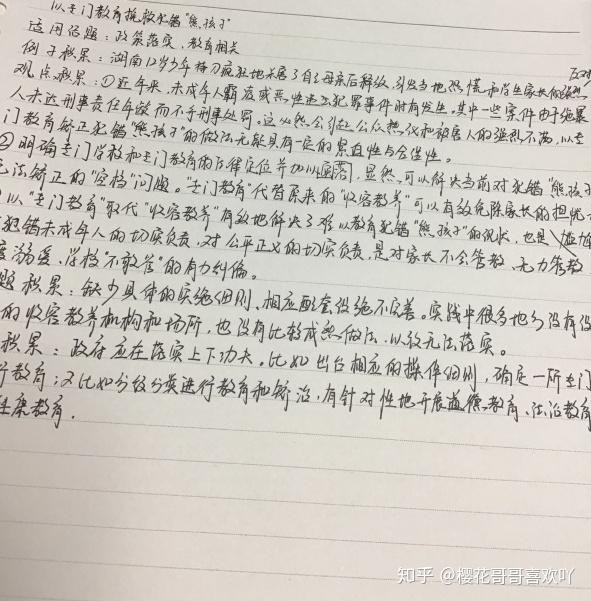 以专门教育挽救犯错"熊孩子"
适用话题：政策落实，教育相关
例子积累：湖南12岁少年持刀疯狂地杀害了自己母亲后释放，引发当地恐慌和学生家长的强烈
观点积累：①近年来，未成年人霸凌或恶性违法犯罪事件时有发生，其中一些案件由于施暴
人未达刑事责任年龄而不予刑事处罚。这必然会引起公众热议和被害人的强烈不满，以专
门教育矫正犯错"熊孩子"的做法无疑具有一定的紧迫性与合理性。
②明确专门学校和专门教育的法律定位并加以，显然，可以解决当前对犯错"熊孩子
无法矫正的"空档"问题。"专门教育"代替原来的"收容教养"可以有效免除家长的担忧
以"专门教育"取代"收容教养"有效地解决了难以教育犯错"熊孩子"的现状，也是
犯错未成年人的切实负责，对公平正义的切实负责，是对家长不会管教、无力管教
度溺爱、学校"不敢管"的有力纠偏。
题积累：缺少具体的实施细则、相应配套设施不完善。实践中很多地方没有设
的收容教养机构和场所，也没有比较成熟做法，以致无法落实。
积累：政府应在落实上下功夫。比如出台相应的操作细则，确定一所专门
行教育；又比如分级分类进行教育和矫治，有针对性地开展道德教育、法治教育
健康教育.
知乎 @樱花哥哥喜欢吖